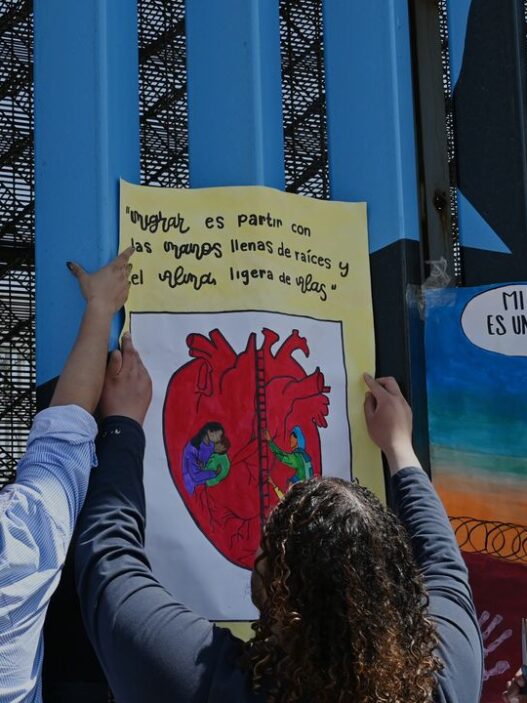 "Migrar es partir con
las manos llenas de raíces y
el alma ligera de alas"
MI
ES UN